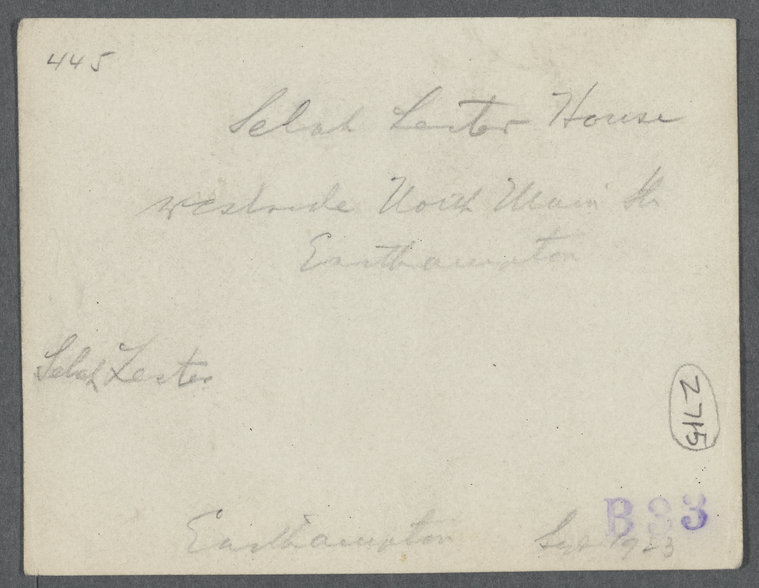 445
Selah Lester House
westside North Main St
Easthampton
Selah Lester
2715
B33
Easthampton Sept 1923